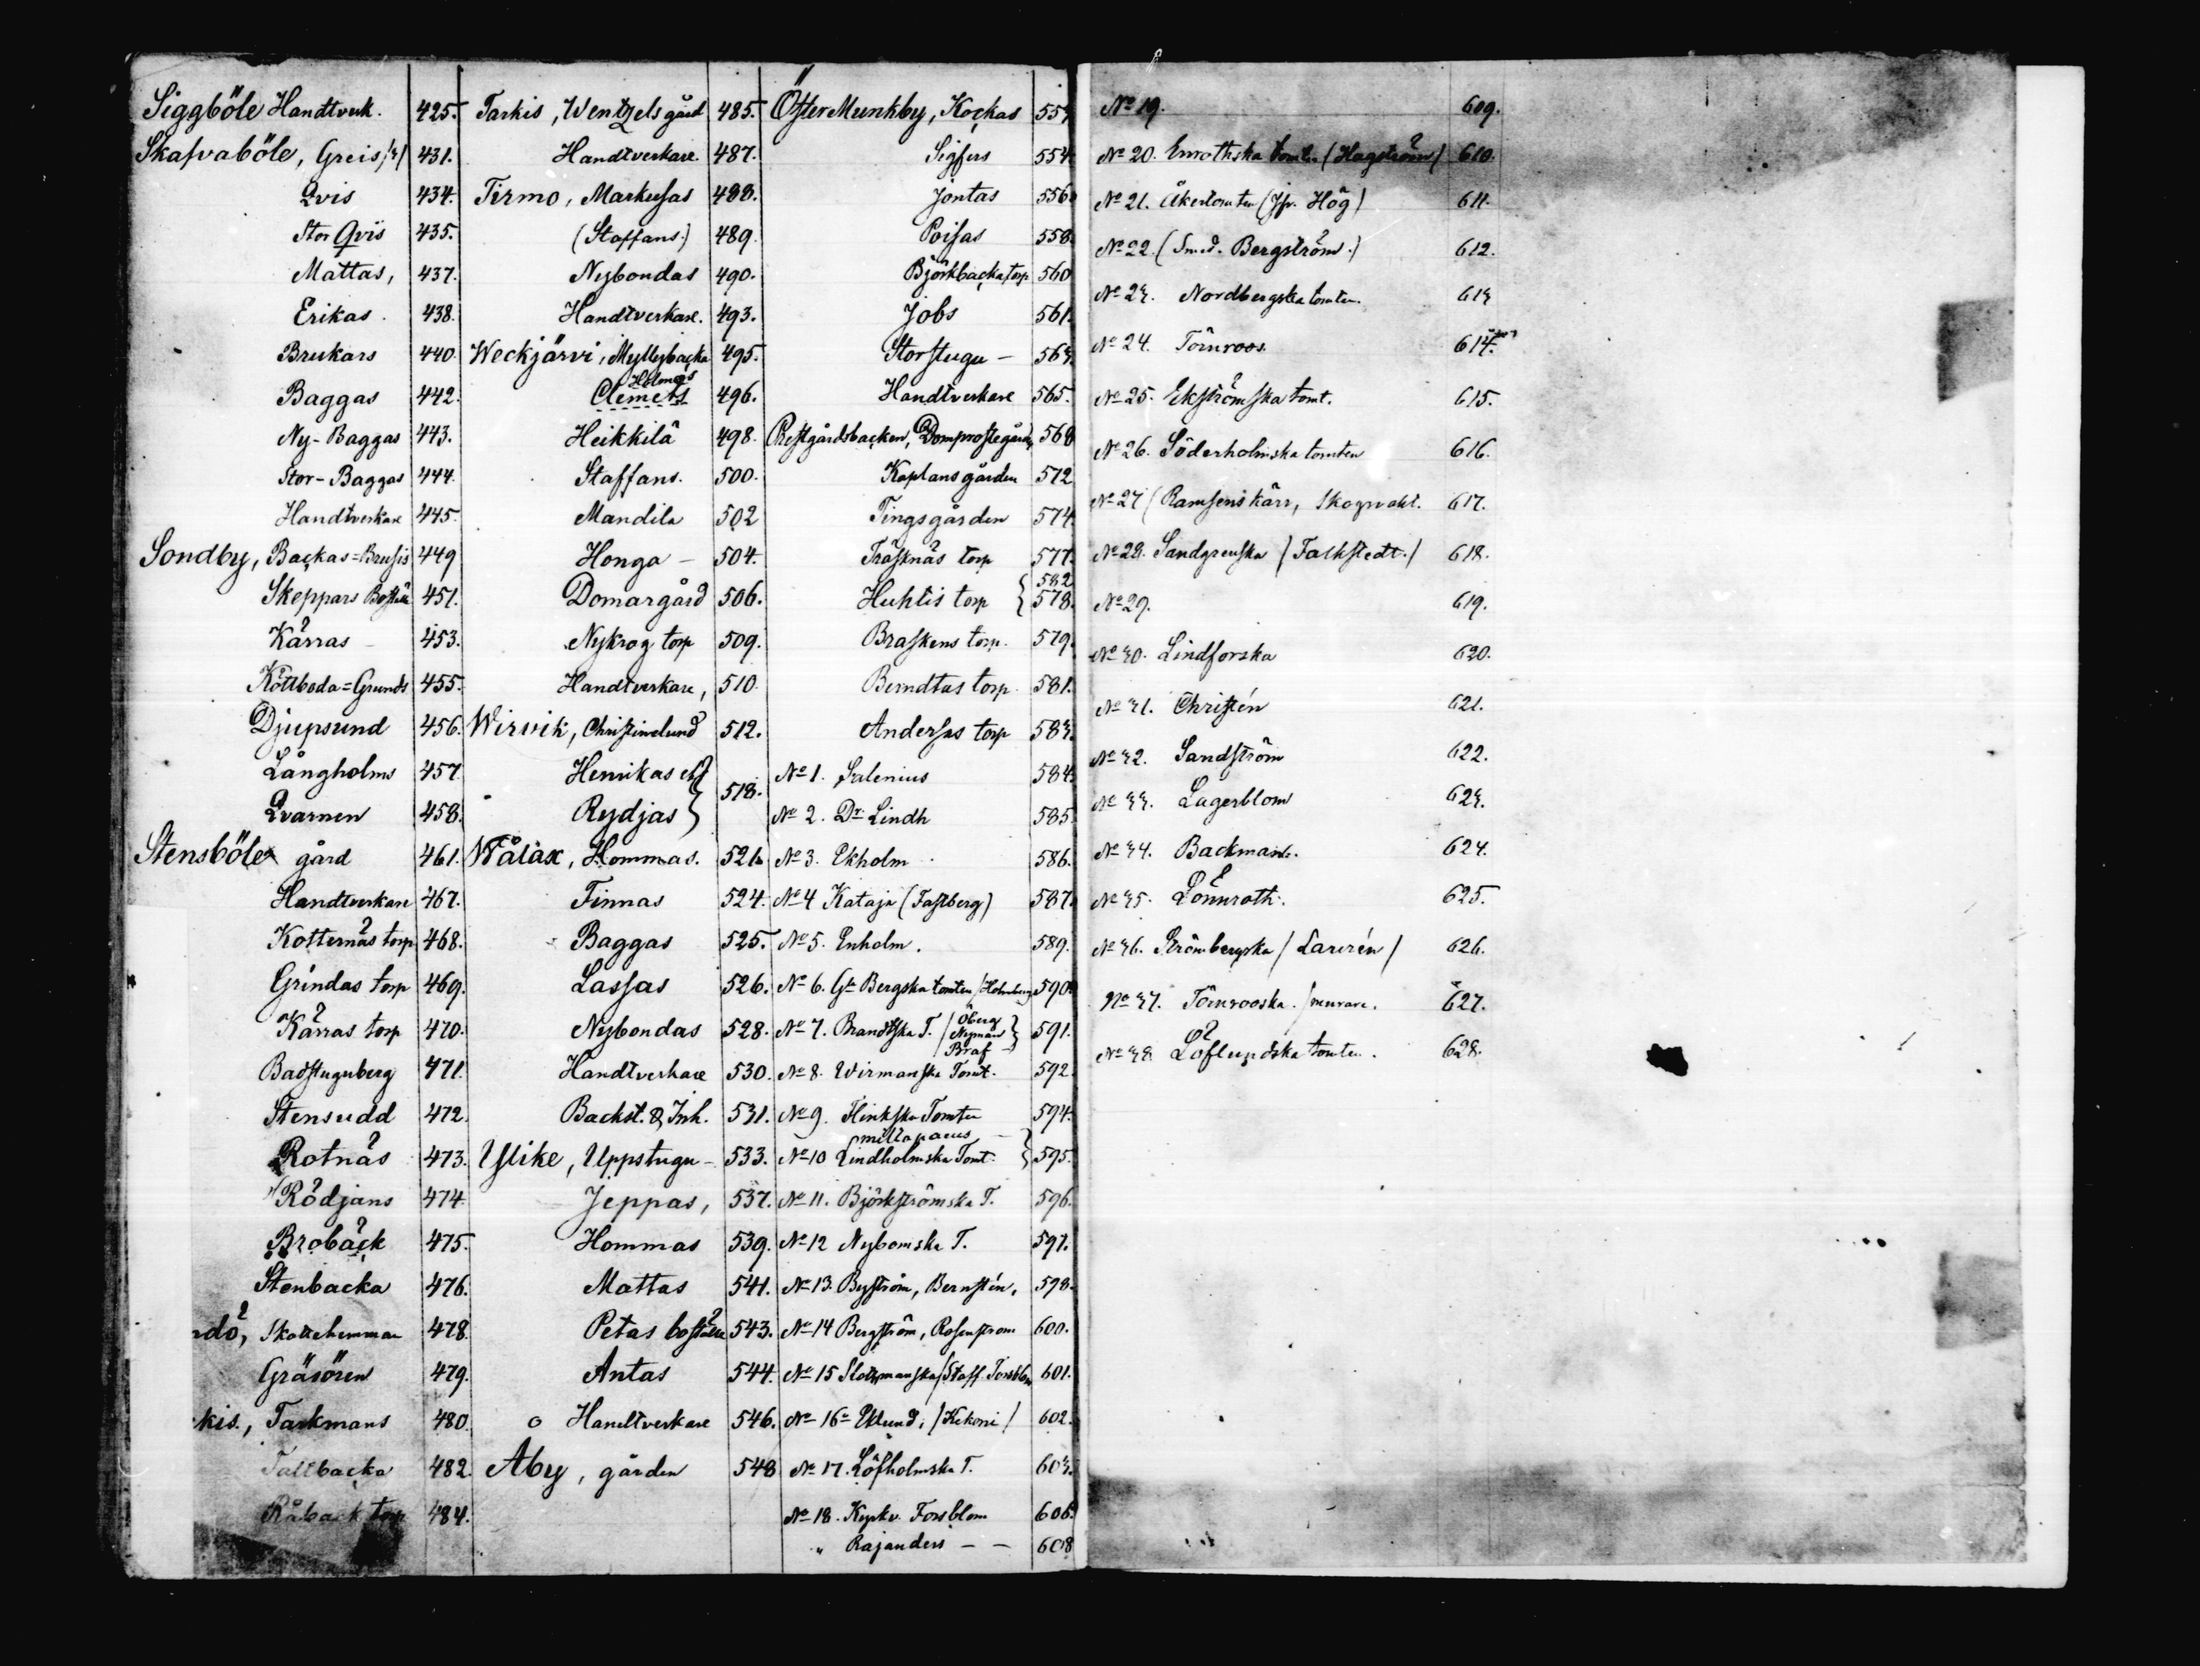 Siggböle Handtverk. 425.
Skafvaböle, Greis 431.
Qvis 434.
Stor Qvis 435.
Mattas, 437.
Erikas. 438.
Brukars 440.
Baggas 442.
Ny-Baggas 443.
Stor-Baggas 444.
Handtverkare 445.
Sondby, Backas=Brusis 449
Skeppars Boställ 451.
Kärras 453.
Köttboda=Grunds 455.
Djupsund 456.
Långholms 457
Qvarnen 458.
Stensböle gård 461.
Handtverkare 467.
Kotternäs torp 468.
Grindas torp 469.
Kärras torp 470.
Badstuguberg 471.
Stensudd 472.
Rotnäs 473.
Rödjans 474.
Brobäck 475.
Stenbacka 476.
dö, Skattehemman 478.
Gräsören 479.
kis, Tarkmans 480.
Tallbacka 482.
Råback torp 484.
Tarkis, Wentzels gård 485.
Handtverkare. 487.
Tirmo, Markusas 488.
(Staffans.) 489.
Nybondas 490.
Handtverkare. 493.
Weckjärvi, Myllybacka 495.
Holmers
Clemets 496.
Heikkilä 498.
Staffans. 500.
Mandila 502
Honga - 504.
Domargård 506.
Nykrog torp 509.
Handtverkare, 510.
Wirvik, Christinelund 512.
Henrikas och
Rydjas } 518.
Wålax, Hommas. 521.
Finnas 524.
Baggas 525.
Lassas 526.
Nybondas 528.
Handtverkare 530.
Backst. & Inh. 531.
Ylike, Uppstugu - 533.
Jeppas, 537.
Hommas 539.
Mattas 541.
Petas boställe 543.
Antas 544.
Handtverkare 546.
Åby, gården 548
Öster Munkby, Kockas 553
Sigfers 554.
Jontas 556.
Poisas 558.
Björkbacka torp 560
Jobs 561.
Storstugu - 563.
Handtverkare 565.
Prestgårdsbacken, Domprostegården 568
Kaplansgården 572
Tingsgården 574.
Träsknäs torp 577.
582
Huhtis torp } 578.
Braskens torp. 579.
Berndtas torp. 581.
Andersas torp 583.
No 1. Salenius 584.
No 2. Dr Lindh 585
No 3. Ekholm 586.
No 4 Kataja (Fastberg) 587.
No 5. Enholm. 589.
No 6. Gla Bergska tomten /Holmberg 590.
No 7. Brandtska T. /Öberg
Nyman
Braf } 591.
No 8. Wirmanska Tomt. 592.
No 9. Flinkska Tomten 594.
No 10 Lindholmska Tomt. } 595.
No 11. Björkströmska T. 596.
No 12 Nybomska T. 597.
No 13 Byström, Bernstén, 598.
No 14 Bergström, Rosenström 600.
No 15 Slottmanska /Staff. Forsblom 601.
No 16 Eklund, /Kekoni/ 602.
No 17. Löfholmska T. 603.
No 18. Kyrkv. Forsblom 606.
" Rajanders - - 608
No 19. 609.
No 20. Enrothska tomten (Hagström) 610.
No 21. Åkertomten (Jfr. Hög) 611.
No 22. (Smed. Bergström.) 612.
No 23. Nordbergska tomten. 613
No 24. Törnroos. 614.
No 25. Ekströmska tomt. 615.
No 26. Söderholmska tomten 616.
No 27 (Ramsenskärr, Skogvakt. 617.
No 28. Sandgrenska (Falkstedt.) 618.
No 29. 619.
No 30. Lindforska 620.
No 31. Christén 621.
No 32. Sandström 622.
No 33. Lagerblom 623.
No 34. Backmans. 624.
No 35. Lönnroth. 625.
No 36. Strömbergska /Lavrén/ 626.
No 37. Törnrooska. /murare. 627.
No 38. Löflundska tomten. 628.